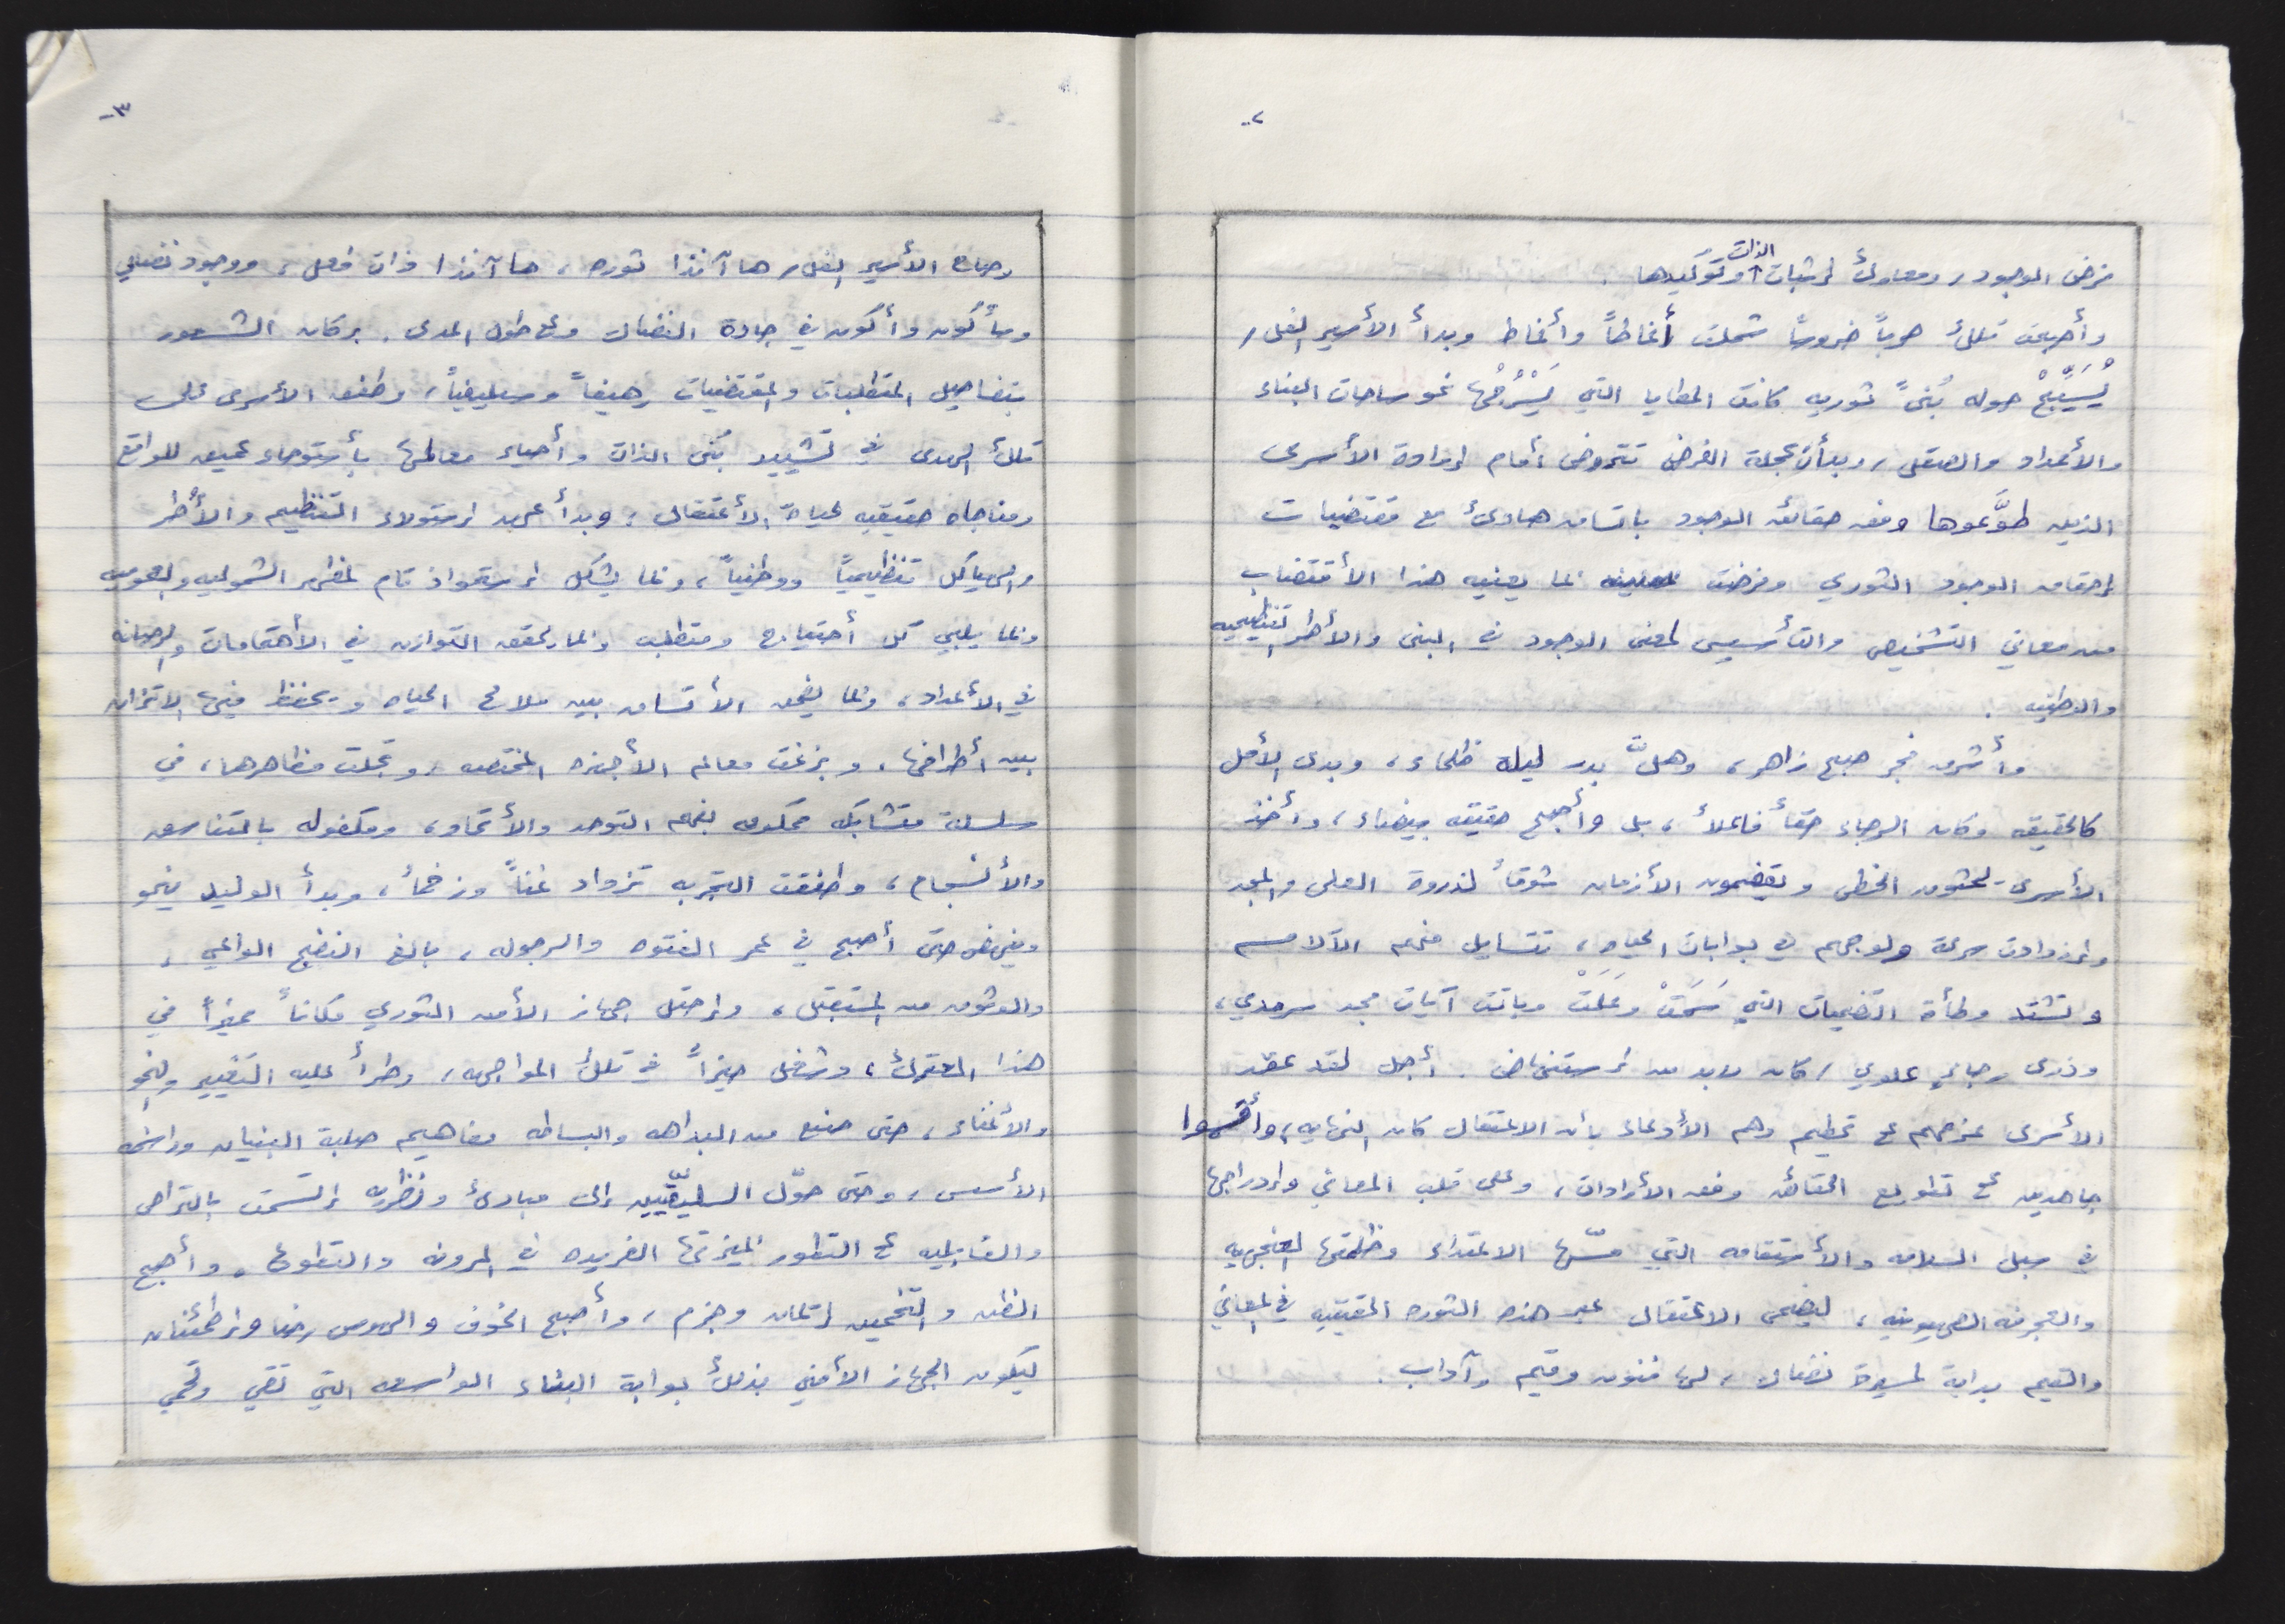 ٢-
فرض الوجود، ومعارك لإثبات الذات وتوكيدها.
وأصبحت تلك حرباً ضروساً شملت أنماطاً وأنماط وبدأ الأسير البطل،
يُسَيِّجْ حوله بُنىً ثوريه كانت المطايا التي يُسْرِجُها نحو ساحات البناء
والأعداد والصقل، وبدأت عجلة الفرض تتروض أمام إرادة الأسرى
الذين طوَّعوها وفق حقائق الوجود باتساق هادئ مع مقتضيات
إحقاق الوجود الثوري وفرضت بما يعنيه هذا الأقتضاب
من معاني التشخيص والتأسيس لمعنى الوجود في البنى والأطر التنظيميه
والوطنيه.
وأشرق فجر صبح زاهر، وهلَّ بدر ليلة ظلماء، وبدى الأمل
كالحقيقه وكان الرجاء حقاً فاعلاً، بل وأصبح حقيقه بيضاء، وأخذ
الأسرى يحثون الخطى ويقضمون الأزمان شوقاً لذروة العلى والمجد
وازدادت سرعة ولوجهم في بوابات الحياه، تتسايل منهم الآلام
وتشتد وطأة التضحيات التي سَمَتْ وعَلَتْ وباتت آيات مجد سرمدي،
وذرى رجاءٍ علوي، كان لابد من إستنهاض. أجل لقد عقد
الأسرى عزمهم على تحطيم وهم الأدعاء بأن الاعتقال كان النهايه، وأقسموا
جاهدين على تطويع الحقائق وفق الأرادات، وعلى قلب المعاني وإدراجها
في سبل السلامه والأستقامه التي مسّها الاعتداء وظلمتها العنجهيه
والعجرفه الصهيونيه، ليضحى الاعتقال عبر هذه الثوره الحقيقيه في المعاني
والقيم بداية لمسيرة نضال، لها فنون وقيم وآداب.
٣-
وصاح الأسير البطل، ها آنذا ثوره، ها آنذا ذات فعل، ووجود نضالي
وسأكون وأكون في جادة النضال وعلى طول المدى. وكان الشعور
بتفاصيل المتطلبات والمقتضيات رهيفاً وسليقياً، وطفق الأسرى على
تلك الهدى في تشييد بُنى الذات وأحياء معالمها بأستوحاء عميق للواقع
ومناجاه حقيقيه لحياة الأعتقال، وبدأ عهد إستولاد التنظيم والأُطر
والهياكل تنظيمياً ووطنياً، وبما يشكل إستحواذ تام لمظهر الشموليه والعموميه
وبما يلبي كل أحتياج ومتطلب وبما يحقق التوازن في الأهتمامات والرصانه
في الأعداد، وبما يضمن الأتساق بين ملامح الحياه ويحفظ فيها الاتزان
بين أطرافها. وبزغت معالم الأجهزه المختصه، وتجلت مظاهرها، في
سلسلة متشابكه محكومه بفهم التوحد والأتحاد، ومكفوله بالتناسق
والأنسجام، وطفقت التجربه تزداد غناً وزخماً، وبدأ الوليد ينمو
وينهض حتى أصبح في عمر الفتوه والرجوله، بالغ النضج الواعي،
والوثوق من المستقبل، وإحتل جهاز الأمن الثوري مكاناً مميزاً في
هذا المعترك، وشغل حيزاً في تلك المواجهه، وطرأ عليه التغيير والنمو
والأغناء، حتى صنع من البداهه والبساطه مفاهيم صلبة البنيان وراسخه
الأسس، وحتى حوّل السليقيّين إلى مبادئ ونظريه إتسمت بالتراص
والقابليه على التطور لميزتها الفريده في المرونه والتطوع. وأصبح
الظن والتخمين إتقان وجزم، وأصبح الخوف والهوس رضا وإطمئنان
ليكون الجهاز الأمني بذلك بوابة البناء الواسعه التي تقي وتحمي